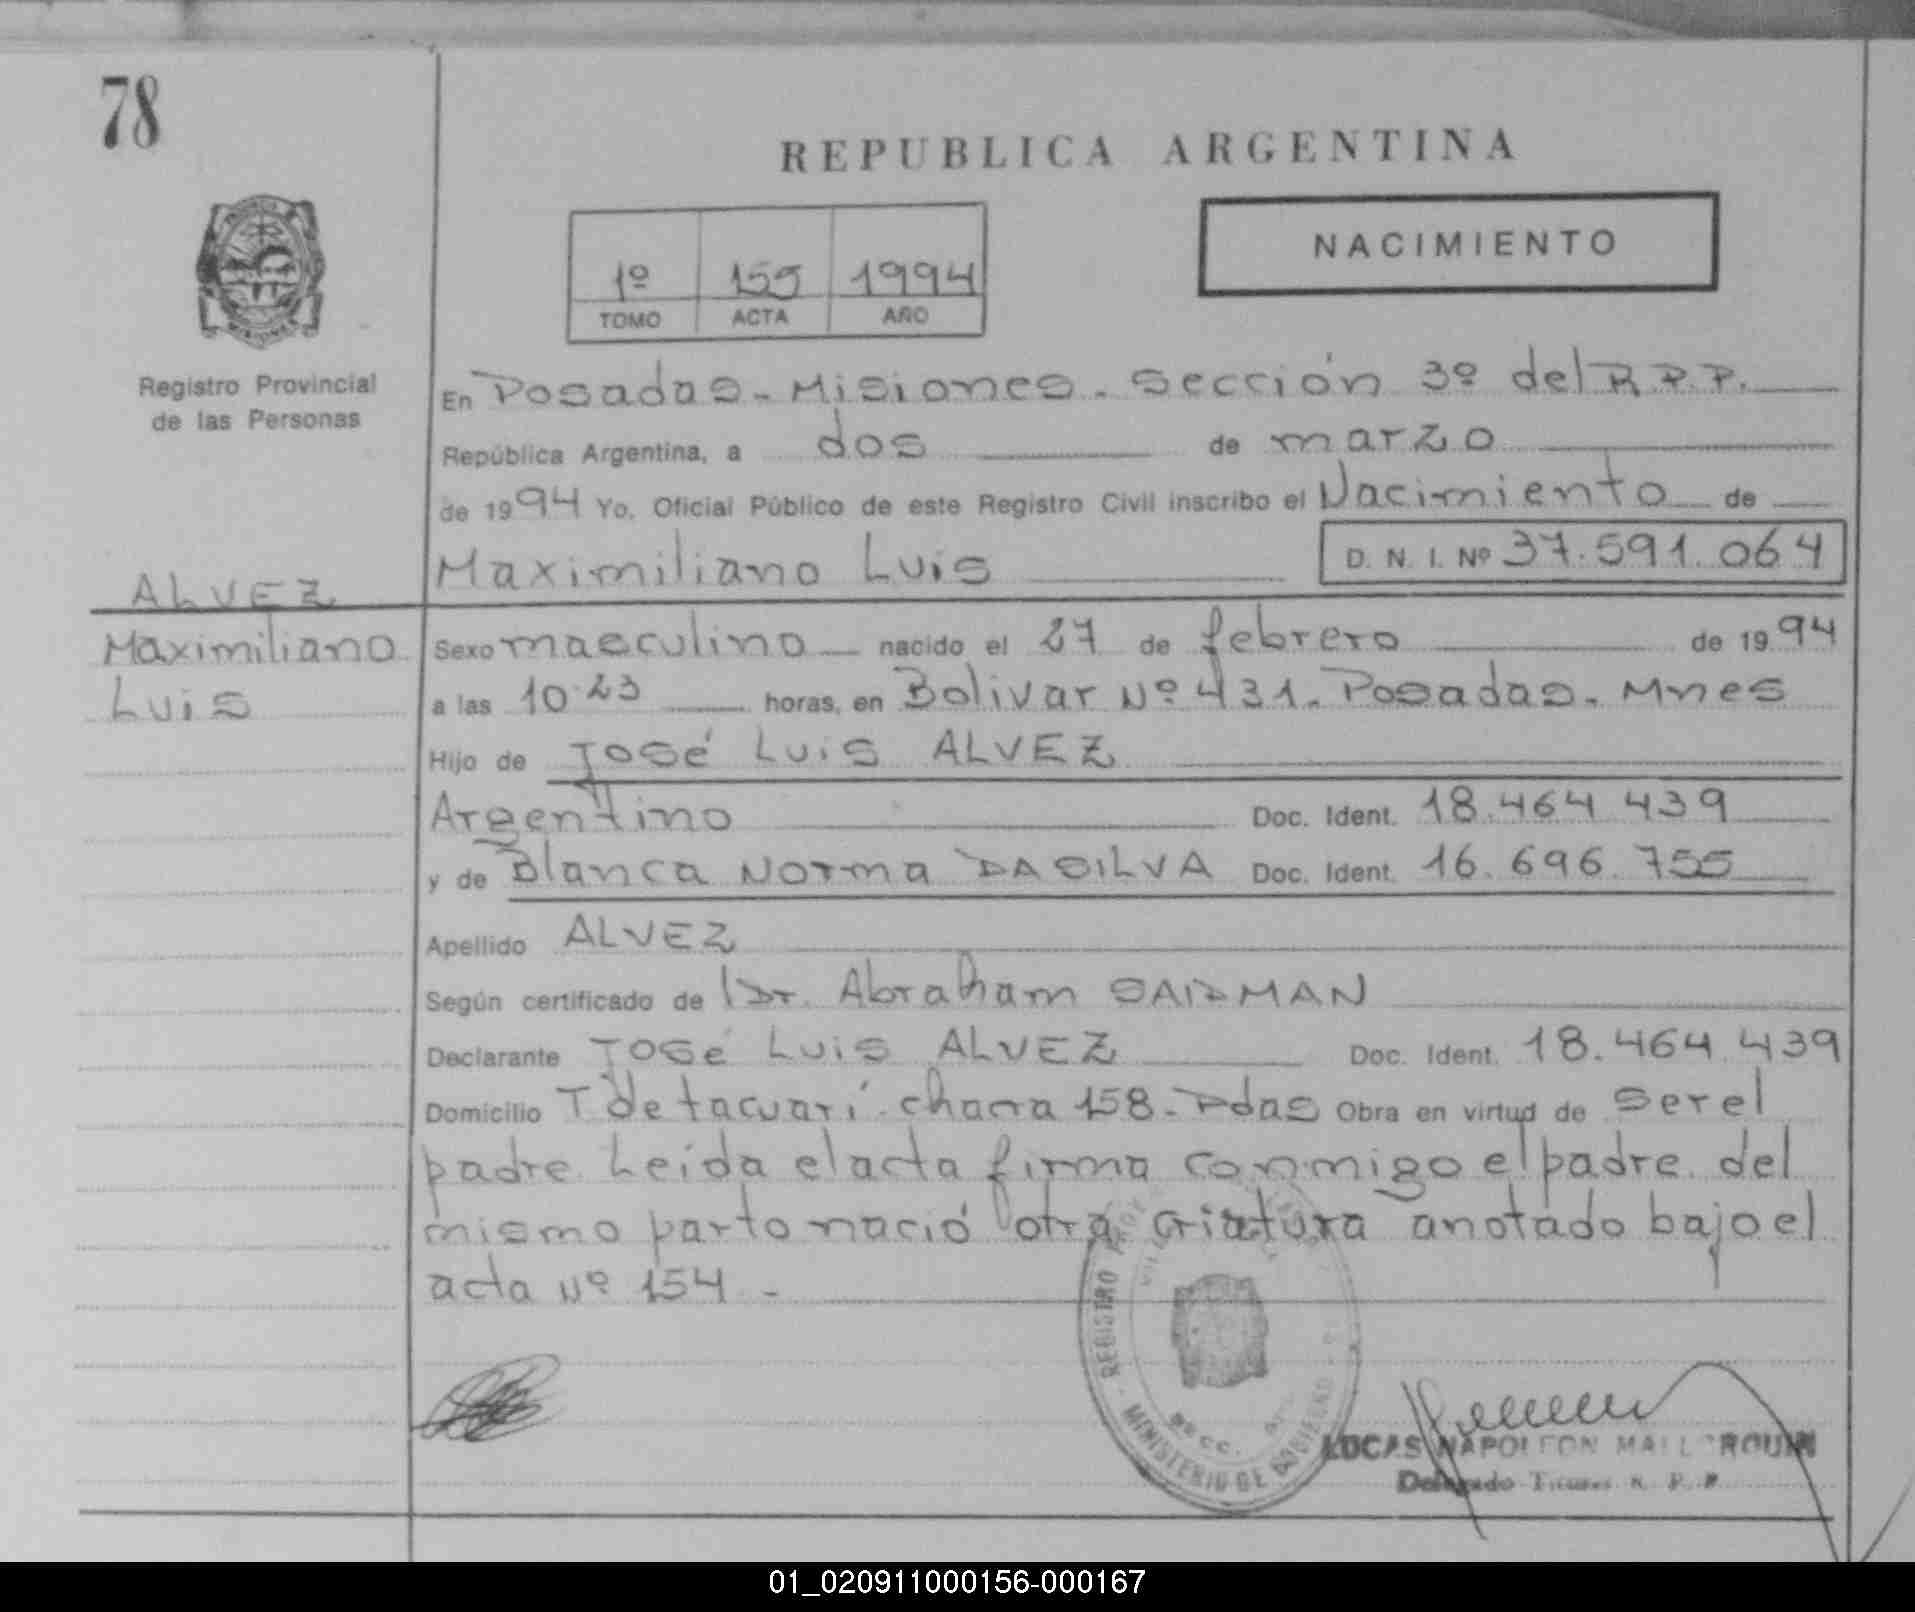 78
REPUBLICA ARGENTINA
NACIMIENTO
1º 155 1994
TOMO ACTA AÑO
Registro Provincial
de las Personas
En Posadas - Misiones - Sección 3º del R.P.P.
República Argentina, a dos de marzo
de 1994 Yo, Oficial Público de este Registro Civil inscribo el Nacimiento de
Maximiliano Luis D. N. I. Nº 37.591.064
ALVEZ
Maximiliano
Luis
Sexo masculino nacido el 27 de febrero de 1994
a las 10.23 horas, en Bolivar Nº 431. Posadas. Mnes
Hijo de José Luis ALVEZ
Argentino Doc. Ident. 18.464.439
y de Blanca Norma DA SILVA Doc. Ident. 16.696.755
Apellido ALVEZ
Según certificado de Dr. Abraham SAIDMAN
Declarante José Luis ALVEZ Doc. Ident. 18.464.439
Domicilio T de tacuarí. chacra 158. Pdas Obra en virtud de ser el
padre. Leida el acta firma conmigo el padre. del
mismo parto nació otra criatura anotado bajo el
acta Nº 154 -
REGISTRO
MINISTERIO DE GOBIERNO
SECC.
LUCAS NAPOLEON MALLORQUIN
Delegado Titular R. P. P.
01_020911000156-000167